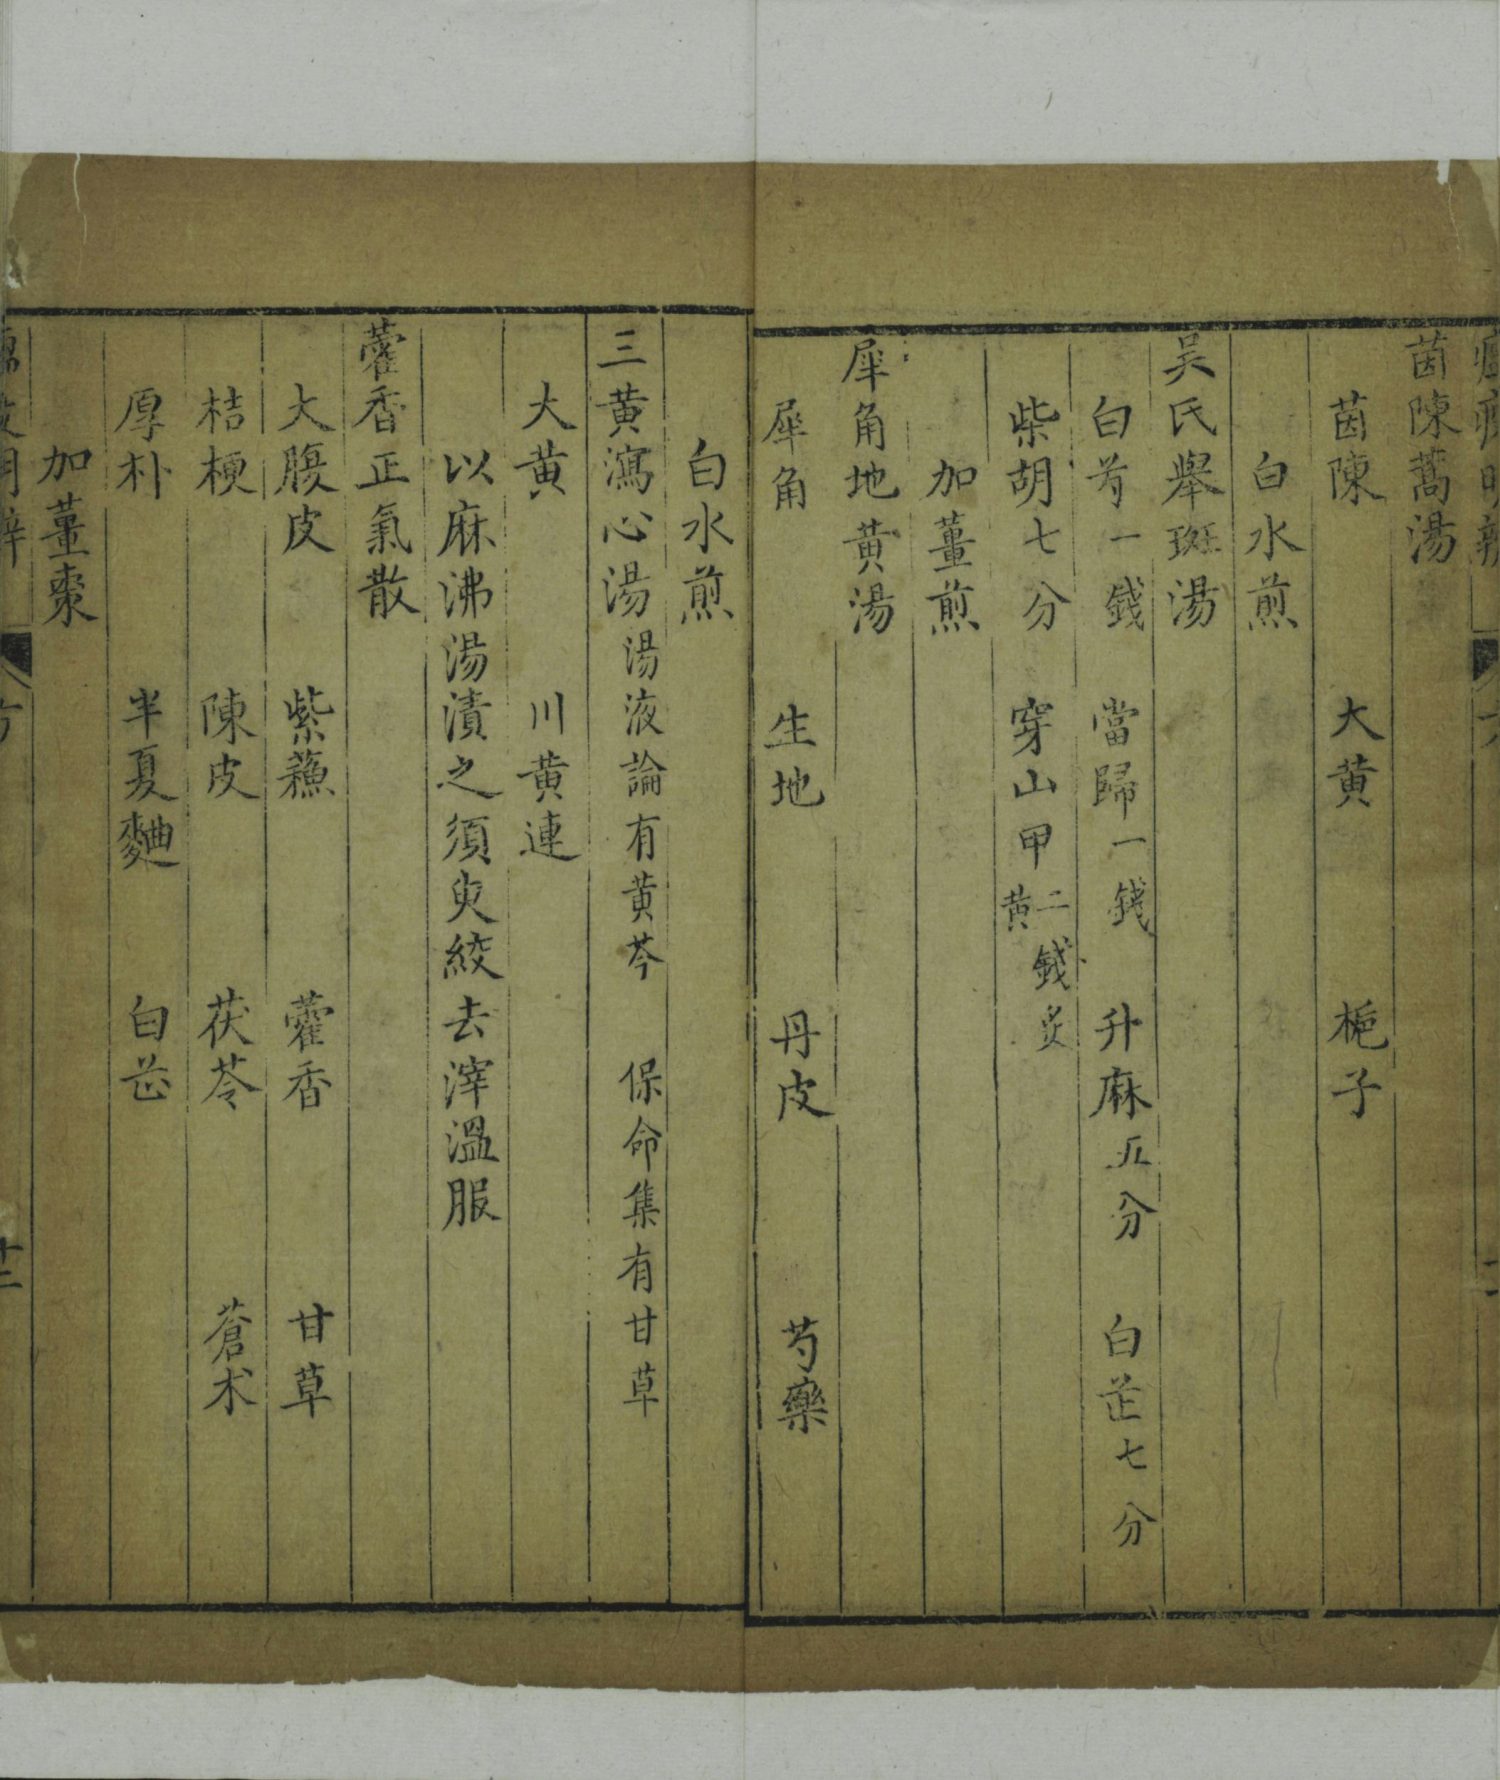 茵陳蒿湯
茵陳 大黄 梔子
白水煎
吴氏舉斑湯
白芍一錢 當歸一錢 升麻五分 白芷七分
柴胡七分 穿山甲二錢炙黄
加薑煎
犀角地黄湯
犀角 生地 丹皮 芍藥
白水煎
三黄瀉心湯 湯液論有黄芩 保命集有甘草
大黄 川黄連
以麻沸湯漬之須臾絞去滓溫服
藿香正氣散
大腹皮 紫蘓 藿香 甘草
桔梗 陳皮 茯苓 蒼术
厚朴 半夏麯 白芷
加薑棗